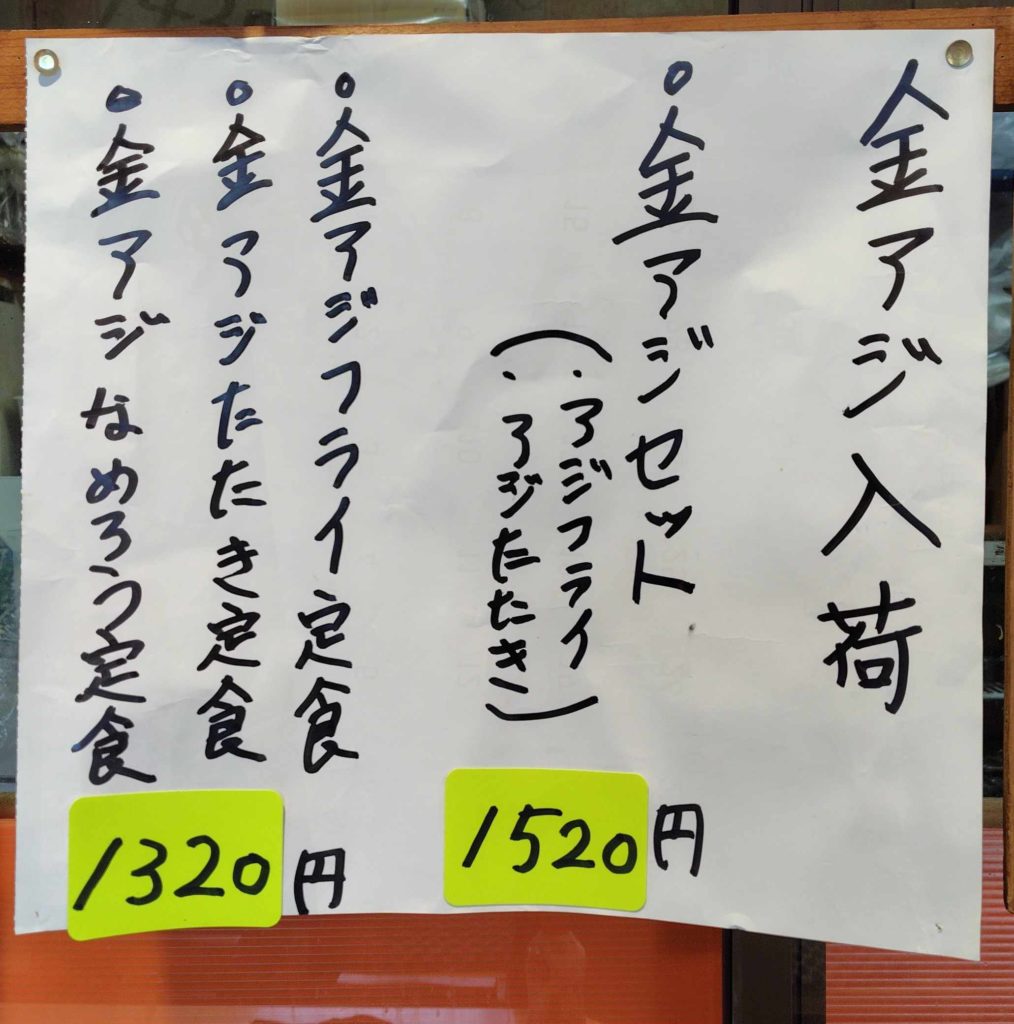 金アジ入荷
○金アジセット
(・アジフライ
・アジたたき)
1520円
○金アジフライ定食
○金アジたたき定食
○金アジなめろう定食
1320円